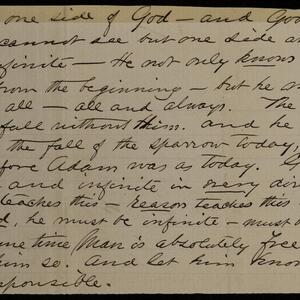 one side of God — and God
cannot see but one side an
finite — He not only knows
from the beginning — but he an
all — all and always. The
fall without him. and he
the fall of the sparrow today,
fore Adam was as today.
and infinite in every dir
teaches this — reason teaches this
he must be infinite — must
me time Man is absolutely free
him so. And let him know
sponsible.